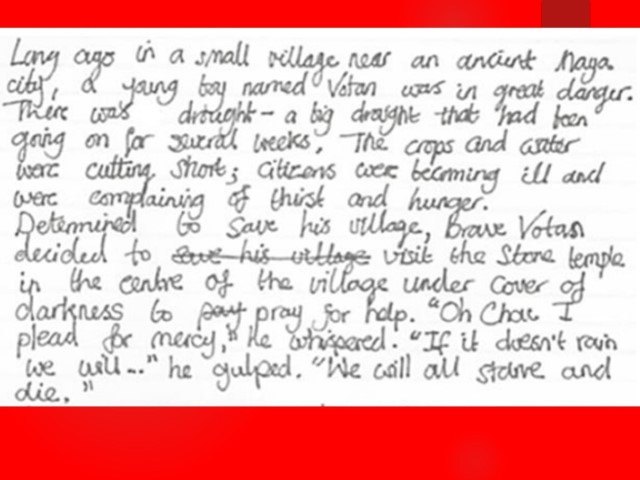 Long ago in a small village near an ancient Maya
city, a young boy named Votan was in great danger.
There was drought - a big drought that had been
going on for several weeks. The crops and water
were cutting short; citizens were becoming ill and
were complaining of thirst and hunger.
Determined to save his village, brave Votan
decided to save his village visit the Stone temple
in the centre of the village under cover of
darkness to pay pray for help. "Oh Chac I
plead for mercy," he whispered. "If it doesn't rain
we will..." he gulped. "We will all starve and
die."